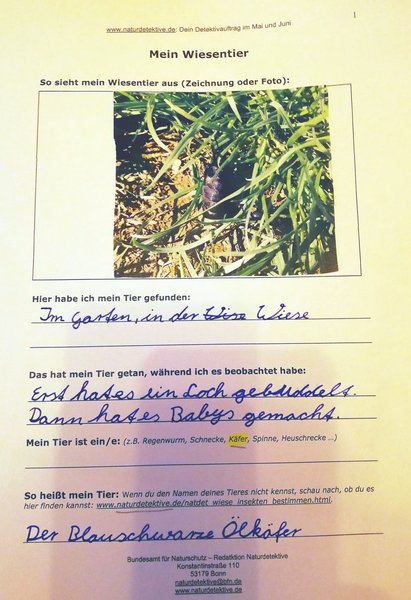 1
www.naturdetektive.de: Dein Detektivauftrag im Mai und Juni
Mein Wiesentier
So sieht mein Wiesentier aus (Zeichnung oder Foto):
Hier habe ich mein Tier gefunden:
Im Garten, in der Wise Wiese
Das hat mein Tier getan, während ich es beobachtet habe:
Erst hat es ein Loch gebuddelt.
Dann hat es Babys gemacht.
Mein Tier ist ein/e: (z.B. Regenwurm, Schnecke, Käfer, Spinne, Heuschrecke ...)
So heißt mein Tier: Wenn du den Namen deines Tieres nicht kennst, schau nach, ob du es
hier finden kannst: www.naturdetektive.de/natdet_wiese_insekten_bestimmen.html.
Der Blauschwarze Ölkäfer
Bundesamt für Naturschutz – Redaktion Naturdetektive
Konstantinstraße 110
53179 Bonn
naturdetektive@bfn.de
www.naturdetektive.de